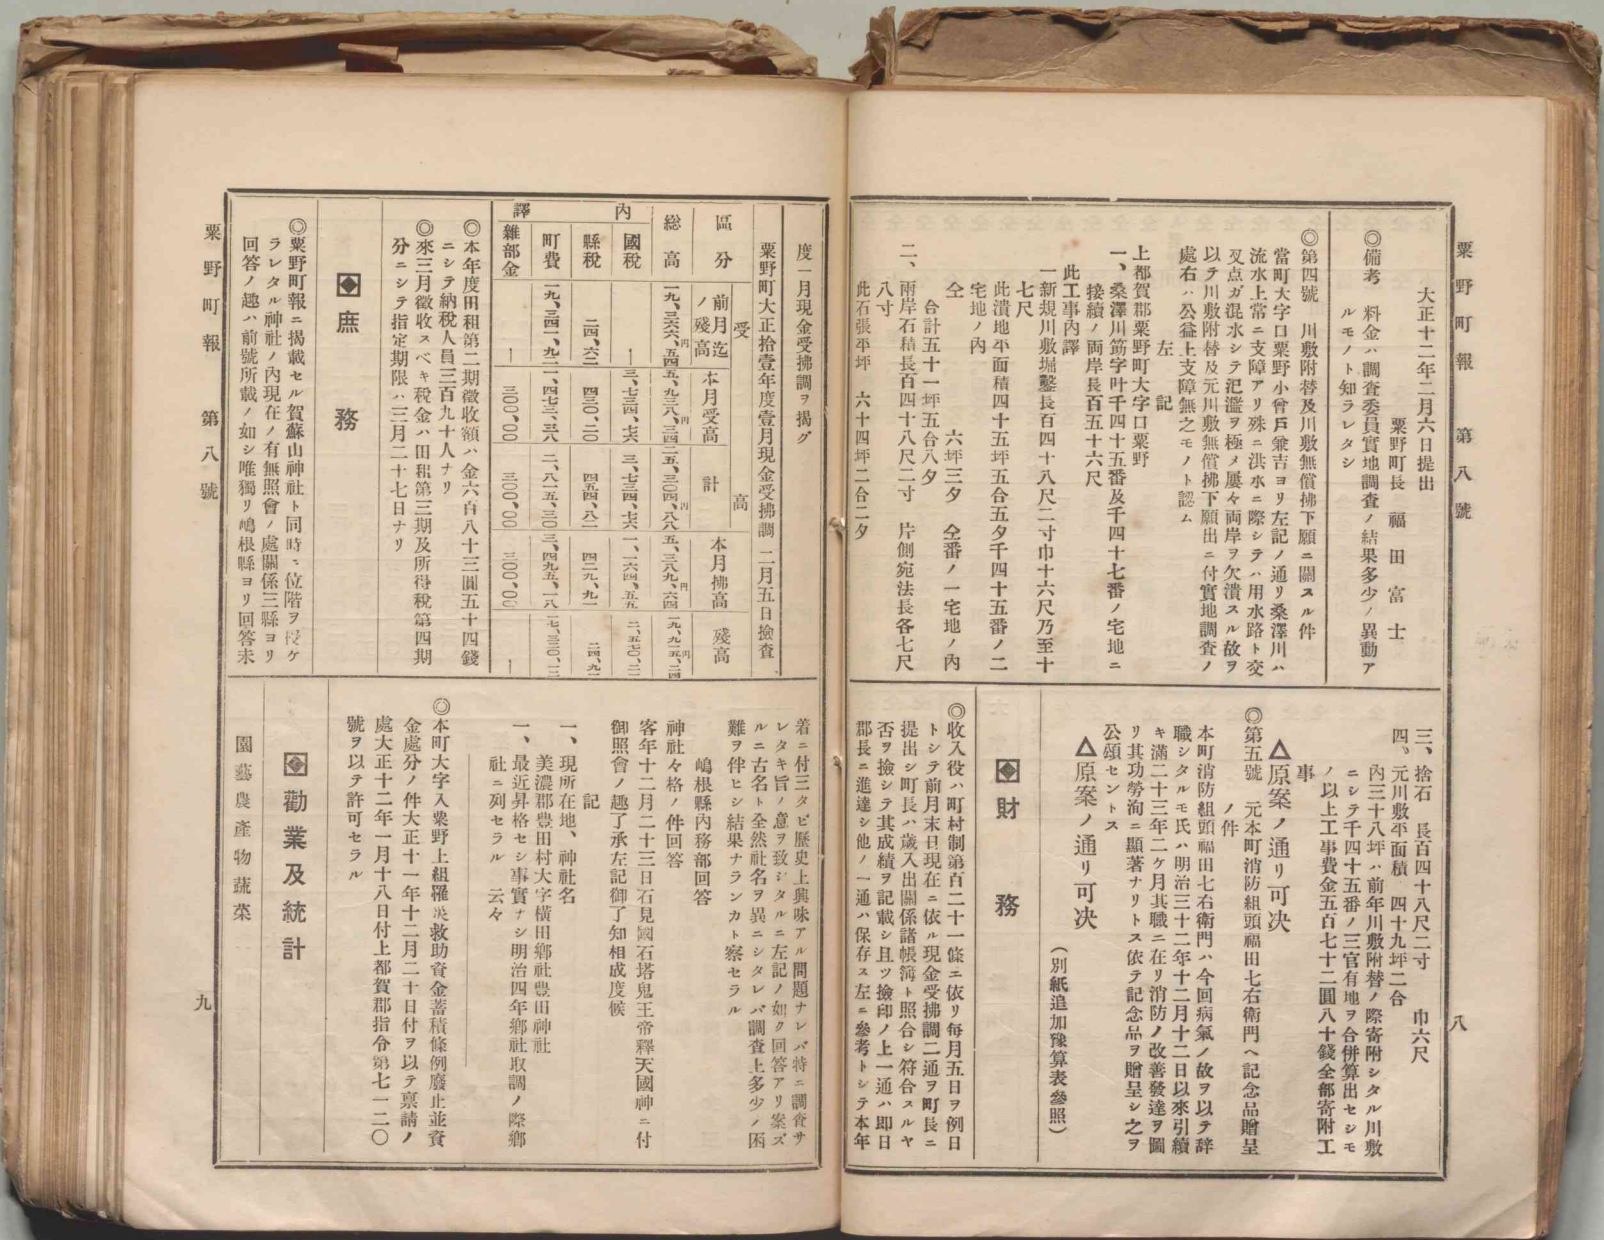 粟野町報　第八號
八
大正十二年二月六日提出
粟野町長　福田富士
◎備考　料金ハ調査委員實地調査ノ結果多少ノ異動ア
ルモノト知ラレタシ
◎第四號　川敷附替及川敷無償拂下願ニ關スル件
當町大字口粟野小曾戸兼吉ヨリ左記ノ通リ桑澤川ハ
流水上常ニ支障アリ殊ニ洪水ニ際シテハ用水路ト交
叉点ガ混水シテ氾濫ヲ極メ屢々両岸ヲ欠潰スル故ヲ
以テ川敷附替及元川敷無償拂下願出ニ付實地調査ノ
處右ハ公益上支障無之モノト認ム
左記
上都賀郡粟野町大字口粟野
一、桑澤川筋字叶千四十五番及千四十七番ノ宅地ニ
接續ノ両岸長百五十六尺
此工事内譯
一新規川敷堀鑿長百四十八尺二寸巾十六尺乃至十
七尺
此潰地平面積四十五坪五合五夕千四十五番ノ二
宅地ノ内
仝　六坪三夕　仝番ノ一宅地ノ内
合計五十一坪五合八夕
二、兩岸石積長百四十八尺二寸　片側宛法長各七尺
八寸
此石張平坪　六十四坪二合二夕
三、捨石　長百四十八尺二寸　巾六尺
四、元川敷平面積　四十九坪二合
内三十八坪ハ前年川敷附替ノ際寄附シタル川敷
ニシテ千四十五番ノ三官有地ヲ合併算出セシモ
ノ以上工事費金五百七十二圓八十錢全部寄附工
事
△原案ノ通リ可決
◎第五號　元本町消防組頭福田七右衛門ヘ記念品贈呈
ノ件
本町消防組頭福田七右衛門ハ今回病氣ノ故ヲ以テ辞
職シタルモ氏ハ明治三十二年十二月十二日以來引續
キ滿二十三年二ケ月其職ニ在リ消防ノ改善發達ヲ圖
リ其功勞洵ニ顯著ナリトス依テ記念品ヲ贈呈シ之ヲ
公頌セントス
△原案ノ通リ可決
（別紙追加豫算表參照）
財務
◎收入役ハ町村制第百二十一條ニ依リ毎月五日ヲ例日
トシテ前月末日現在ニ依ル現金受拂調二通ヲ町長ニ
提出シ町長ハ歳入出關係諸帳簿ト照合シ符合スルヤ
否ヲ撿シテ其成績ヲ記載シ且ツ撿印ノ上一通ハ即日
郡長ニ進達シ他ノ一通ハ保存ス左ニ參考トシテ本年
度一月現金受拂調ヲ揭グ
粟野町大正拾壹年度壹月現金受拂調　二月五日撿査
區分　受高　前月迄ノ殘高　本月受高　計　本月拂高　殘高
総高　一九、三六六、五四　五、九三八、三四　二五、三〇四、八八　五、三八九、六四　一九、九一五、二四
內譯
國稅　｜　三、七三四、七六　三、七三四、七六　一、一六四、五五　二、五七〇、二一
縣稅　二四、六二　四三〇、二〇　四五四、八二　四二九、九一　二四、九一
町費　一九、三四一、九二　一、四七三、三八　二〇、八一五、三〇　三、四九五、一八　一七、三二〇、一二
雜部金　｜　三〇〇、〇〇　三〇〇、〇〇　三〇〇、〇〇　｜
◎本年度田租第二期徵收額ハ金六百八十三圓五十四錢
ニシテ納稅人員三百九十人ナリ
◎來三月徵收スベキ稅金ハ田租第三期及所得稅第四期
分ニシテ指定期限ハ三月二十七日ナリ
庶務
◎粟野町報ニ揭載セル賀蘇山神社ト同時ニ位階ヲ授ケ
ラレタル神社ノ內現在ノ有無照會ノ處關係三縣ヨリ
回答ノ趣ハ前號所載ノ如シ唯獨リ嶋根縣ヨリ回答未
着ニ付三タビ歷史上興味アル問題ナレバ特ニ調査サ
レタキ旨ノ意ヲ致シタルニ左記ノ如ク回答アリ案ズ
ルニ古名ト全然社名ヲ異ニシタレバ調査上多少ノ困
難ヲ伴ヒシ結果ナランカト察セラル
嶋根縣內務部回答
神社々格ノ件回答
客年十二月二十三日石見國石塔鬼王帝釋天國神ニ付
御照會ノ趣了承左記御了知相成度候
記
一、現所在地、神社名
美濃郡豊田村大字橫田鄕社豊田神社
一、最近昇格セシ事實ナシ明治四年鄕社取調ノ際鄕
社ニ列セラル　云々
◎本町大字入粟野上組罹災救助資金蓄積條例廢止並資
金處分ノ件大正十一年十二月二十日付ヲ以テ禀請ノ
處大正十二年一月十八日付上都賀郡指令第七一二〇
號ヲ以テ許可セラル
勸業及統計
園藝農產物蔬菜
粟野町報　第八號
九